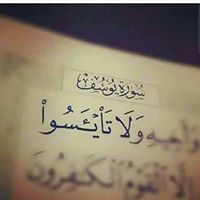 سُورَةُ يُوسُفَ
وَأَخِيهِ وَلَا تَا۟يْـَٔسُوا۟
إِلَّا ٱلْقَوْمُ ٱلْكَٰفِرُونَ